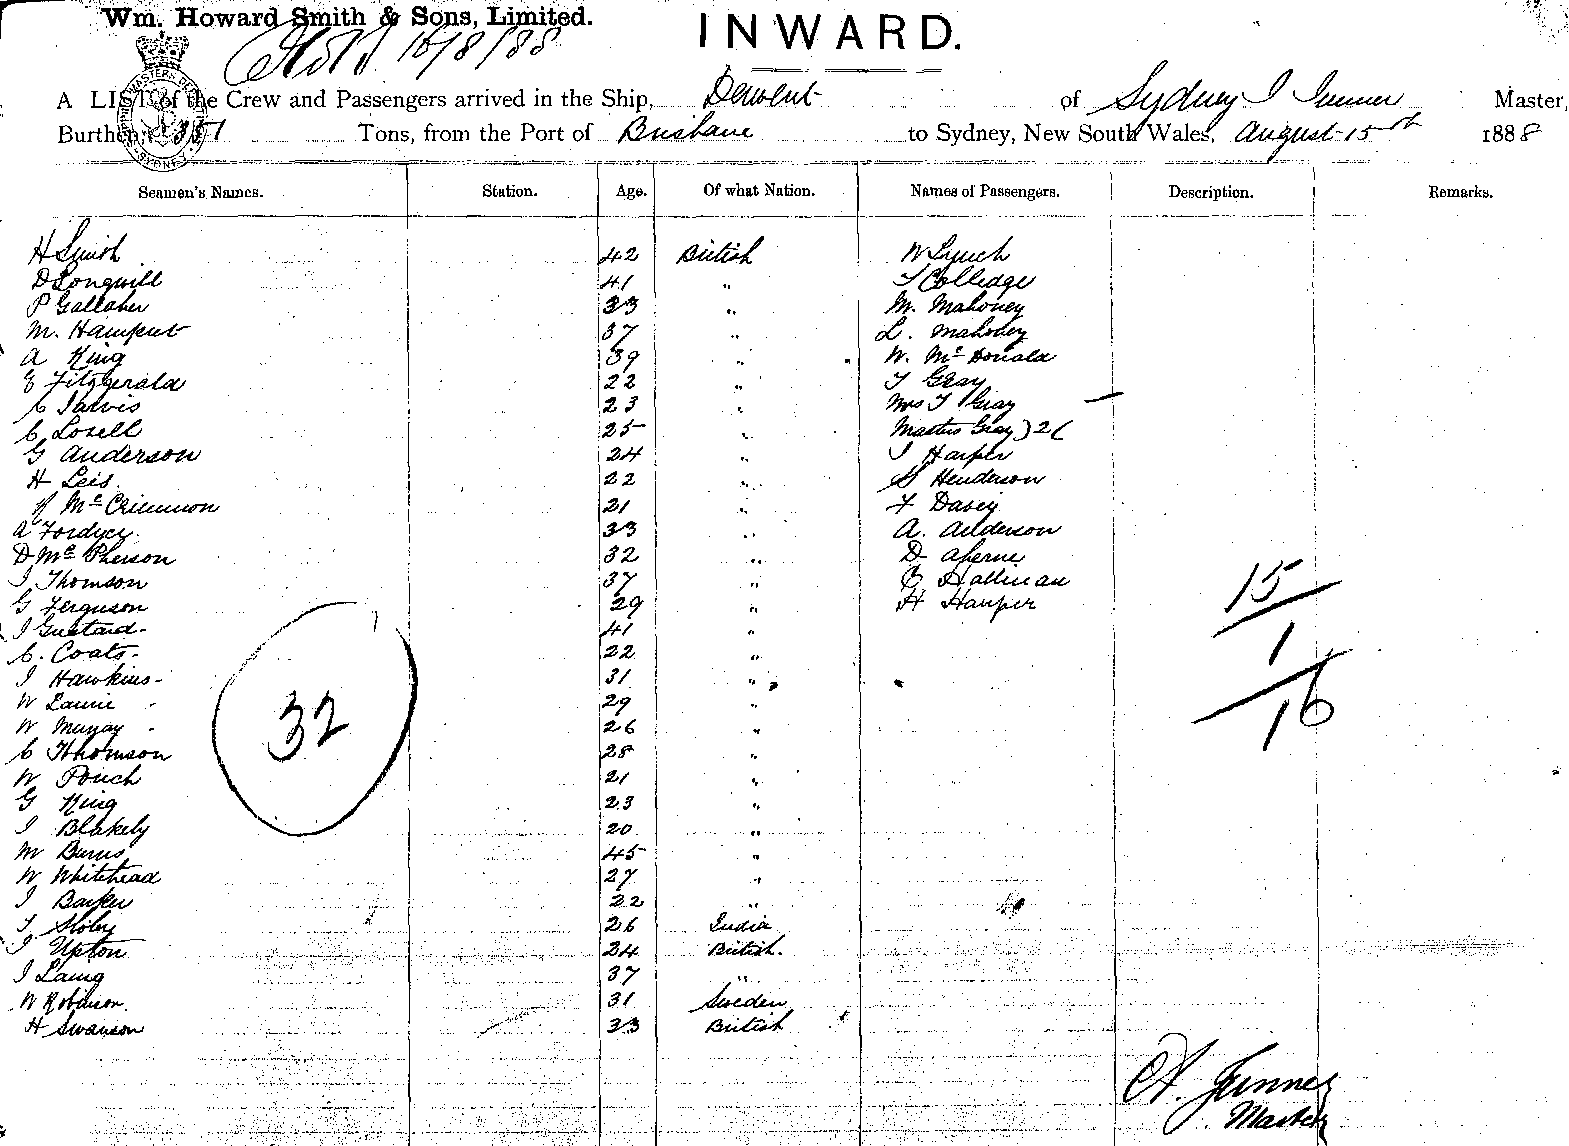 Wm. Howard Smith & Sons, Limited.
INWARD.
16/8/88
A LIST of the Crew and Passengers arrived in the Ship, Derwent of Sydney, Master,
Burthen 351 Tons, from the Port of Brisbane to Sydney, New South Wales, August 15th 1888
Seamen's Names. Station. Age. Of what Nation. Names of Passengers. Description. Remarks.
H Smith 42 British W Lynch
D Longwill 41 " T Colledge
P Gallaher 33 " M. Mahoney
M. 37 " L. Mahoney
A King 39 " W. McDonald
E Fitzgerald 22 " T Gray
C Jarvis 23 " Mrs T Gray —
C Losell 25 " Master Gray
G Anderson 24 " J Harper
H Leis. 22 " S Henderson
McCrimmon 21 " F Davey
A Fordyce. 33 " A. Anderson
D McPherson 32 " D Aherne
J Thomson 37 " Hallinan
G Ferguson 29 " H Harper
J Gustard 41 "
C. Coats 22 "
J Hawkins 31 "
W Laurie 29 "
W Murray 26 "
C Thomson 28 "
W Pouch 21 "
G King 23 "
J Blakely 20 "
M Burns 45 "
W Whitehead 27 "
J Barker 22 "
T 26 India
J Upton 24 British.
J Laing 37 "
W Robinson. 31 Sweden
H Swanson 33 British
32
15
1
16
Junner
Master